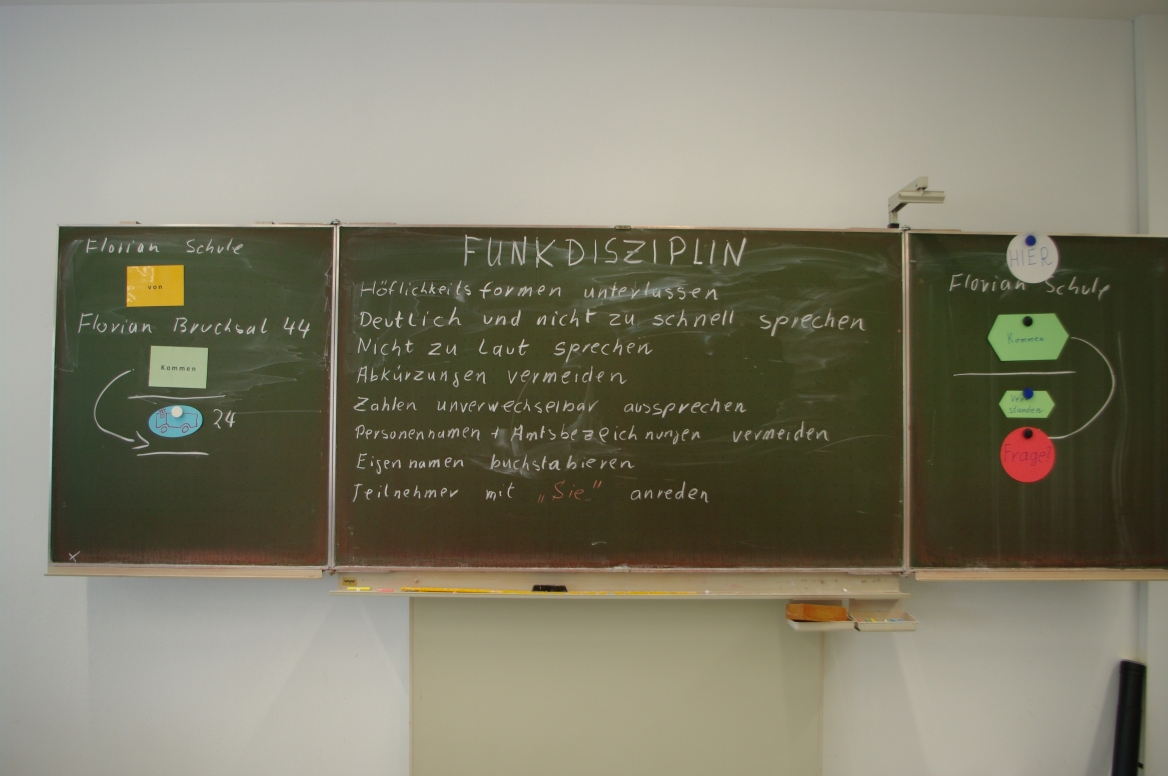 Florian Schule
von
Florian Bruchsal 44
Kommen
24
x
FUNKDISZIPLIN
Höflichkeitsformen unterlassen
Deutlich und nicht zu schnell sprechen
Nicht zu laut sprechen
Abkürzungen vermeiden
Zahlen unverwechselbar aussprechen
Personennamen + Amtsbezeichnungen vermeiden
Eigennamen buchstabieren
Teilnehmer mit „Sie" anreden
HIER
Florian Schule
Kommen
standen
Frage!